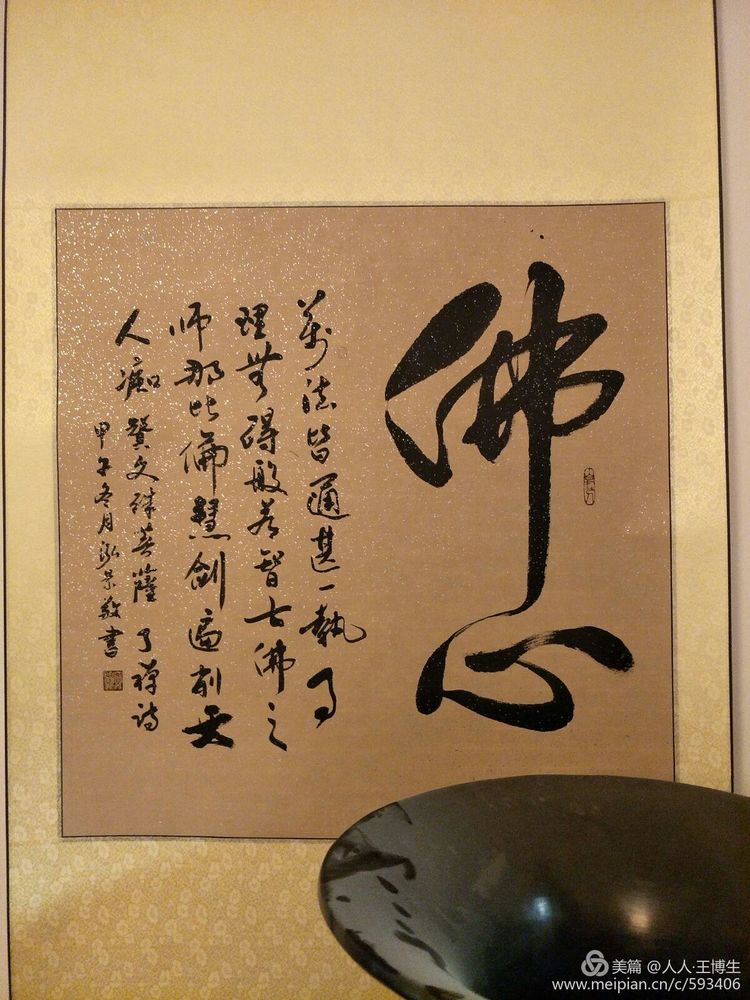 佛心
萬法皆通甚一執事
理無碍般若智七佛之
師那比倫慧劍遍削天
人痴贊文殊菩薩了禪詩
甲午冬月泓景敬書
美篇 @人人·王博生
www.meipian.cn/c/593406